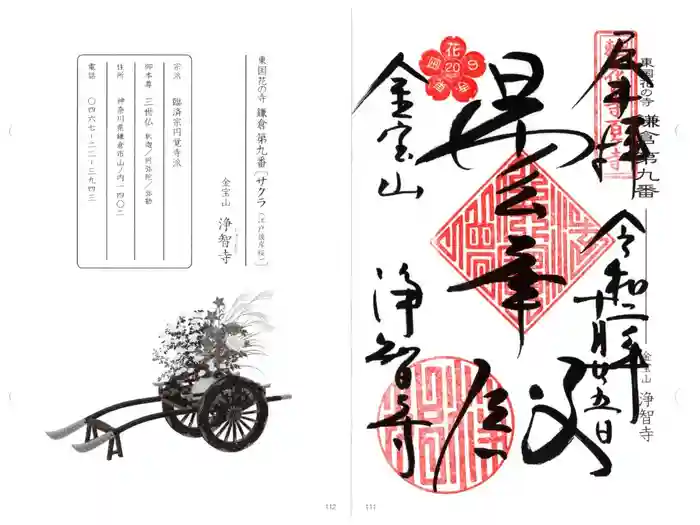 東国花の寺 鎌倉第九番
金宝山 浄智寺
奉拝
令和二年十月廿五日
曇華殿
金宝山
浄智寺
20
111
東国花の寺 鎌倉第九番［サクラ（江戸彼岸桜）］
金宝山 浄智寺
宗派 臨済宗円覚寺派
御本尊 三世仏 釈迦／阿弥陀／弥勒
住所 神奈川県鎌倉市山ノ内一四〇二
電話 〇四六七-二二-三九四三
112